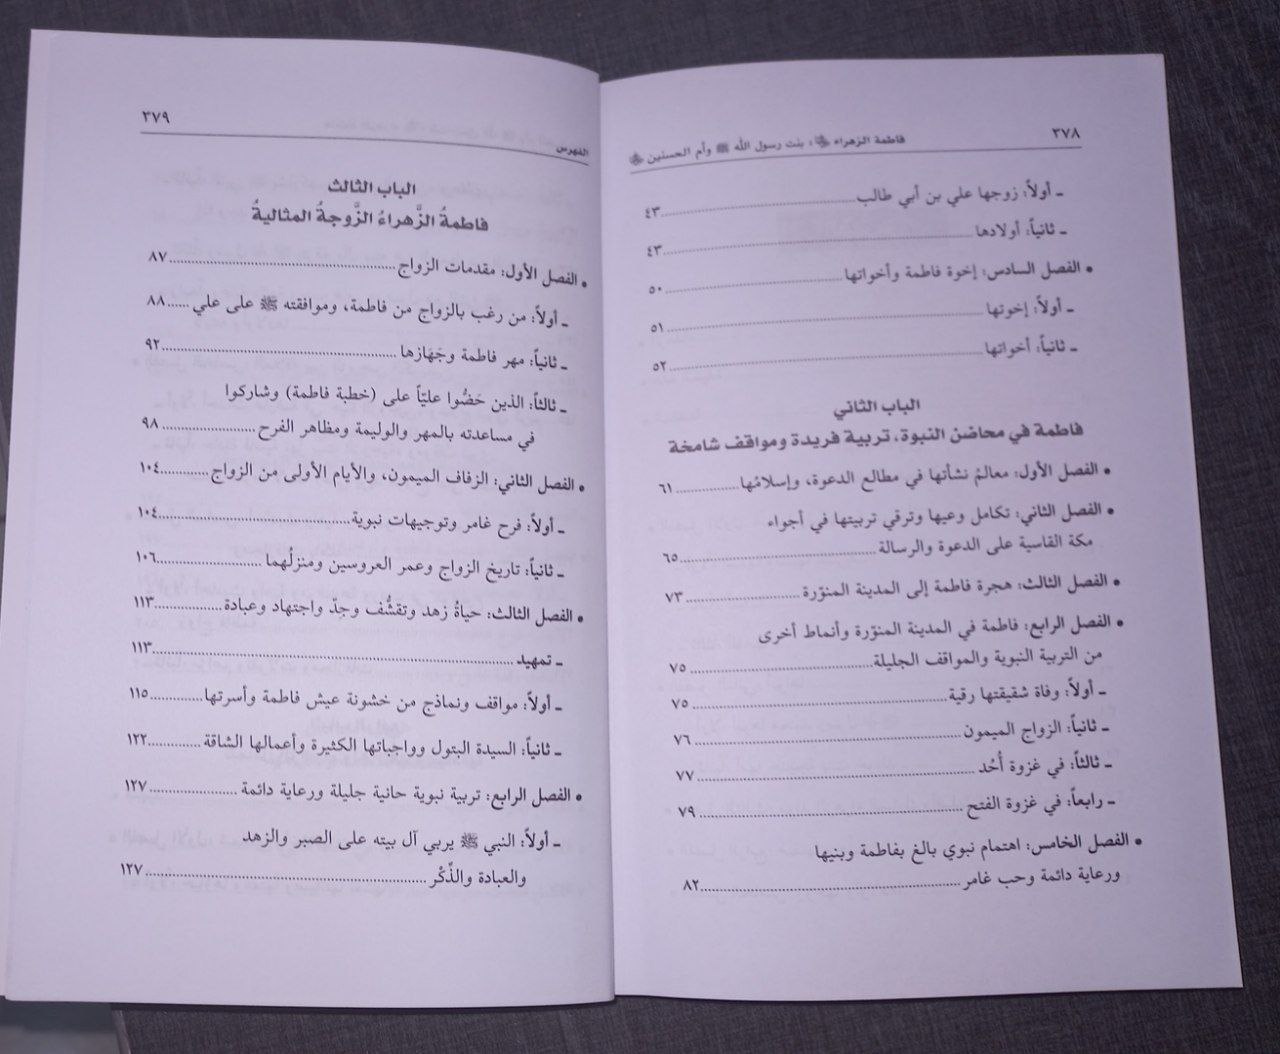 ٣٧٨
فاطمة الزهراء ﵂: بنت رسول الله ﷺ وأم الحسنين ﵄
ـ أولاً: زوجها علي بن أبي طالب ..... ٤٣
ـ ثانياً: أولادها ..... ٤٣
• الفصل السادس: إخوة فاطمة وأخواتها ..... ٥٠
ـ أولاً: إخوتها ..... ٥١
ـ ثانياً: أخواتها ..... ٥٢
الباب الثاني
فاطمة في محاضن النبوة، تربية فريدة ومواقف شامخة
• الفصل الأول: معالمُ نشأتها في مطالع الدعوة، وإسلامُها ..... ٦١
• الفصل الثاني: تكامل وعيها وترقي تربيتها في أجواء
مكة القاسية على الدعوة والرسالة ..... ٦٥
• الفصل الثالث: هجرة فاطمة إلى المدينة المنوّرة ..... ٧٣
• الفصل الرابع: فاطمة في المدينة المنوّرة وأنماط أخرى
من التربية النبوية والمواقف الجليلة ..... ٧٥
ـ أولاً: وفاة شقيقتها رقية ..... ٧٥
ـ ثانياً: الزواج الميمون ..... ٧٦
ـ ثالثاً: في غزوة أُحُد ..... ٧٧
ـ رابعاً: في غزوة الفتح ..... ٧٩
• الفصل الخامس: اهتمام نبوي بالغ بفاطمة وبنيها
ورعاية دائمة وحب غامر ..... ٨٢
الفهرس
٣٧٩
الباب الثالث
فاطمةُ الزَّهراءُ الزَّوجةُ المثاليةُ
• الفصل الأول: مقدمات الزواج ..... ٨٧
ـ أولاً: من رغب بالزواج من فاطمة، وموافقته ﷺ على علي ..... ٨٨
ـ ثانياً: مهر فاطمة وجَهَازها ..... ٩٢
ـ ثالثاً: الذين حَضُّوا عليّاً على (خطبة فاطمة) وشاركوا
في مساعدته بالمهر والوليمة ومظاهر الفرح ..... ٩٨
• الفصل الثاني: الزفاف الميمون، والأيام الأولى من الزواج ..... ١٠٤
ـ أولاً: فرح غامر وتوجيهات نبوية ..... ١٠٤
ـ ثانياً: تاريخ الزواج وعمر العروسين ومنزلُهما ..... ١٠٦
• الفصل الثالث: حياةُ زهد وتقشُّف وجدٍّ واجتهاد وعبادة ..... ١١٣
ـ تمهيد ..... ١١٣
ـ أولاً: مواقف ونماذج من خشونة عيش فاطمة وأسرتها ..... ١١٥
ـ ثانياً: السيدة البتول وواجباتها الكثيرة وأعمالها الشاقة ..... ١٢٢
• الفصل الرابع: تربية نبوية حانية جليلة ورعاية دائمة ..... ١٢٧
ـ أولاً: النبي ﷺ يربي آل بيته على الصبر والزهد
والعبادة والذِّكْر ..... ١٢٧